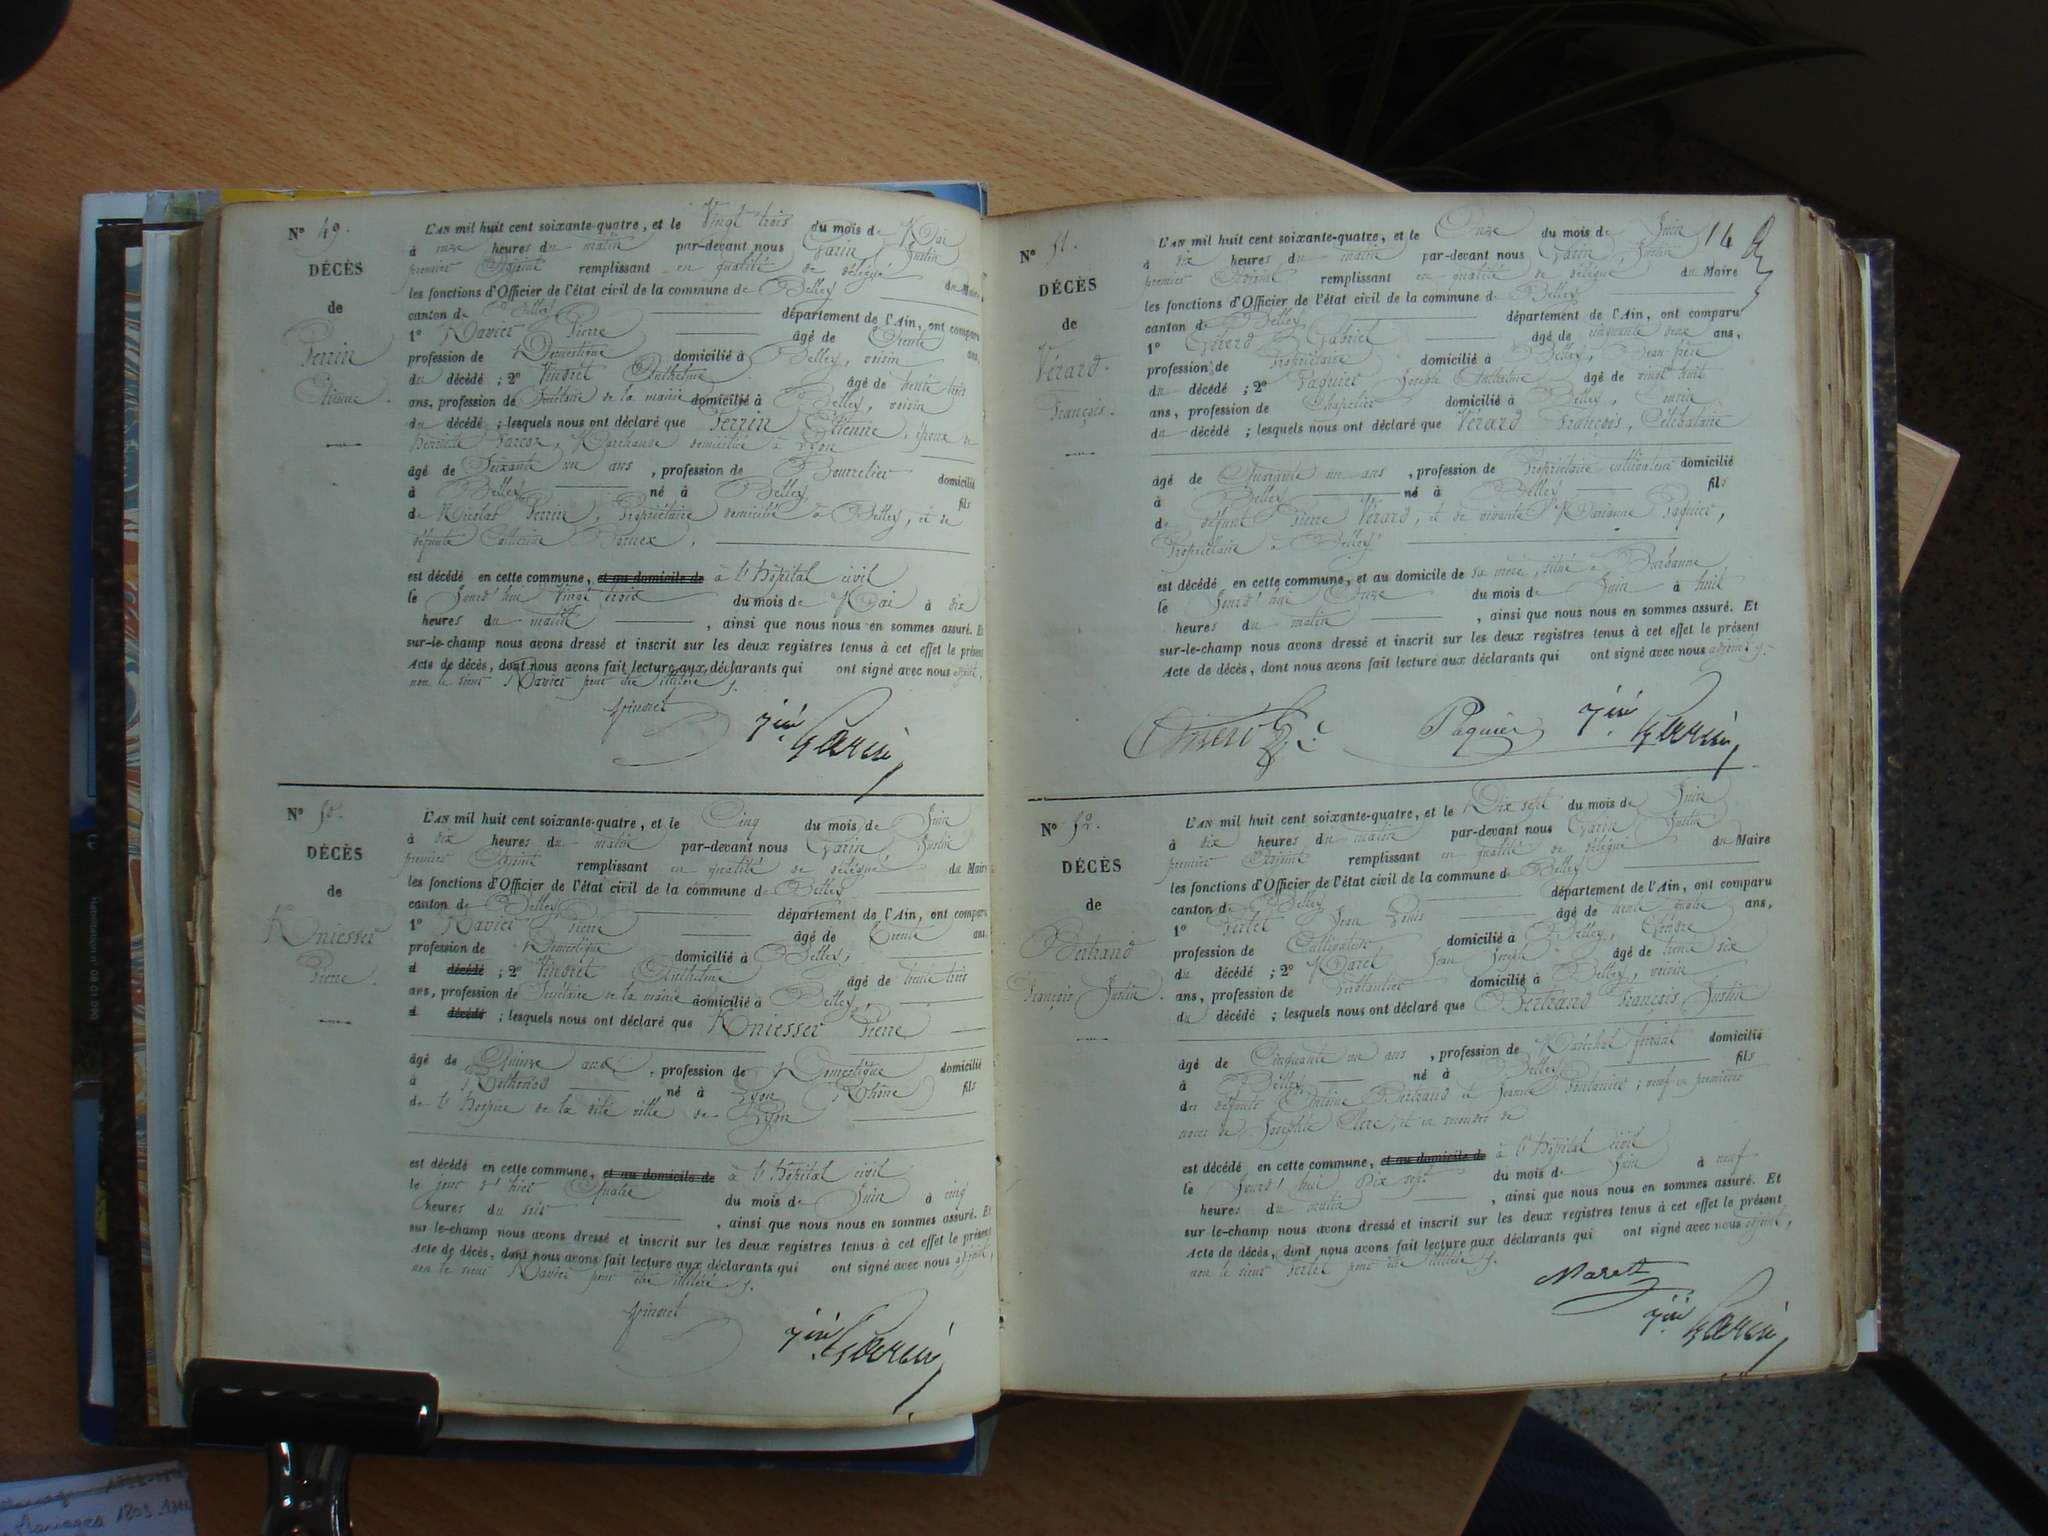 N° 49.
DÉCÈS
de
Perrin
Etienne.
L'AN mil huit cent soixante-quatre, et le Vingt trois du mois de Mai
à onze heures du matin par-devant nous Garin Justin
premier Adjoint remplissant en qualité de délégué du Maire
les fonctions d'Officier de l'état civil de la commune de Belley
canton de Belley département de l'Ain, ont comparu
1° Navier Pierre âgé de Trente ans,
profession de Domestique domicilié à Belley, voisin
du décédé ; 2° Vinoret Anthelme âgé de trente trois
ans, profession de Secrétaire de la mairie domicilié à Belley, voisin
du décédé ; lesquels nous ont déclaré que Perrin Etienne, époux de
Marchande domiciliée à Lyon
âgé de Soixante un ans , profession de Bourrelier domicilié
à Belley né à Belley fils
de Nicolas Perrin, Propriétaire domicilié à Belley, et de
défunte Catherine
est décédé en cette commune, et au domicile de à l'hôpital civil
le Jourd'hui Vingt trois du mois de Mai à dix
heures du matin , ainsi que nous nous en sommes assuré. Et
sur-le-champ nous avons dressé et inscrit sur les deux registres tenus à cet effet le présent
Acte de décès, dont nous avons fait lecture aux déclarants qui ont signé avec nous adjoint,
non le sieur Navier pour être illitéré
Vinoret Jin Garin
N° 50.
DÉCÈS
de
Kniesser
Pierre.
L'AN mil huit cent soixante-quatre, et le Cinq du mois de Juin
à dix heures du matin par-devant nous Garin Justin
premier Adjoint remplissant en qualité de délégué du Maire
les fonctions d'Officier de l'état civil de la commune de Belley
canton de Belley département de l'Ain, ont comparu
1° Navier Pierre âgé de Trente ans
profession de Domestique domicilié à Belley,
d décédé ; 2° Vinoret Anthelme âgé de trente trois
ans, profession de Secrétaire de la mairie domicilié à Belley,
d décédé ; lesquels nous ont déclaré que Kniesser Pierre
âgé de Quinze ans , profession de Domestique domicilié
à Rothonod né à Lyon Rhône fils
de l'hospice de la dite ville de Lyon
est décédé en cette commune, et au domicile de à l'hôpital civil
le jour d'hier Quatre du mois de Juin à cinq
heures du soir , ainsi que nous nous en sommes assuré. Et
sur-le-champ nous avons dressé et inscrit sur les deux registres tenus à cet effet le présent
Acte de décès, dont nous avons fait lecture aux déclarants qui ont signé avec nous adjoint,
non le sieur Navier pour être illitéré
Vinoret Jin Garin
14
N° 51.
DÉCÈS
de
Vérard
François.
L'AN mil huit cent soixante-quatre, et le Onze du mois de Juin
à dix heures du matin par-devant nous Garin Justin
premier Adjoint remplissant en qualité de délégué du Maire
les fonctions d'Officier de l'état civil de la commune de Belley
canton de Belley département de l'Ain, ont comparu
1° Gabriel âgé de cinquante deux ans,
profession de Propriétaire domicilié à Belley, Beau-frère
du décédé ; 2° Paquier Joseph Anthelme âgé de vingt huit
ans, profession de Chapelier domicilié à Belley, Cousin
du décédé ; lesquels nous ont déclaré que Vérard François, Célibataire
âgé de Quarante un ans , profession de Propriétaire cultivateur domicilié
à Belley né à Belley fils
de défunt Pierre Vérard, et de vivante Marianne Paquier,
Propriétaire à Belley
est décédé en cette commune, et au domicile de sa mère, situé à
le Jourd'hui Onze du mois de Juin à huit
heures du matin , ainsi que nous nous en sommes assuré. Et
sur-le-champ nous avons dressé et inscrit sur les deux registres tenus à cet effet le présent
Acte de décès, dont nous avons fait lecture aux déclarants qui ont signé avec nous adjoint
Paquier Jin Garin
N° 52.
DÉCÈS
de
Bertrand
François Justin.
L'AN mil huit cent soixante-quatre, et le Dix sept du mois de Juin
à dix heures du matin par-devant nous Garin Justin
premier Adjoint remplissant en qualité de délégué du Maire
les fonctions d'Officier de l'état civil de la commune de Belley
canton de Belley département de l'Ain, ont comparu
1° Pertel Jean Louis âgé de trente quatre ans,
profession de Cultivateur domicilié à Belley, Gendre
du décédé ; 2° Maret Jean Joseph âgé de trente six
ans, profession de Ferblantier domicilié à Belley, voisin
du décédé ; lesquels nous ont déclaré que Bertrand François Justin
âgé de Cinquante un ans , profession de Maréchal ferrant domicilié
à Belley né à Belley fils
des défunts Antoine Bertrand et Jeanne ; veuf en premières
noces de Josephte Clerc, et en secondes de
est décédé en cette commune, et au domicile de à l'hôpital civil
le Jourd'hui Dix sept du mois de Juin à neuf
heures du matin , ainsi que nous nous en sommes assuré. Et
sur-le-champ nous avons dressé et inscrit sur les deux registres tenus à cet effet le présent
Acte de décès, dont nous avons fait lecture aux déclarants qui ont signé avec nous adjoint,
non le sieur Pertel pour être illitéré
Maret
Jin Garin
Mariages 1803